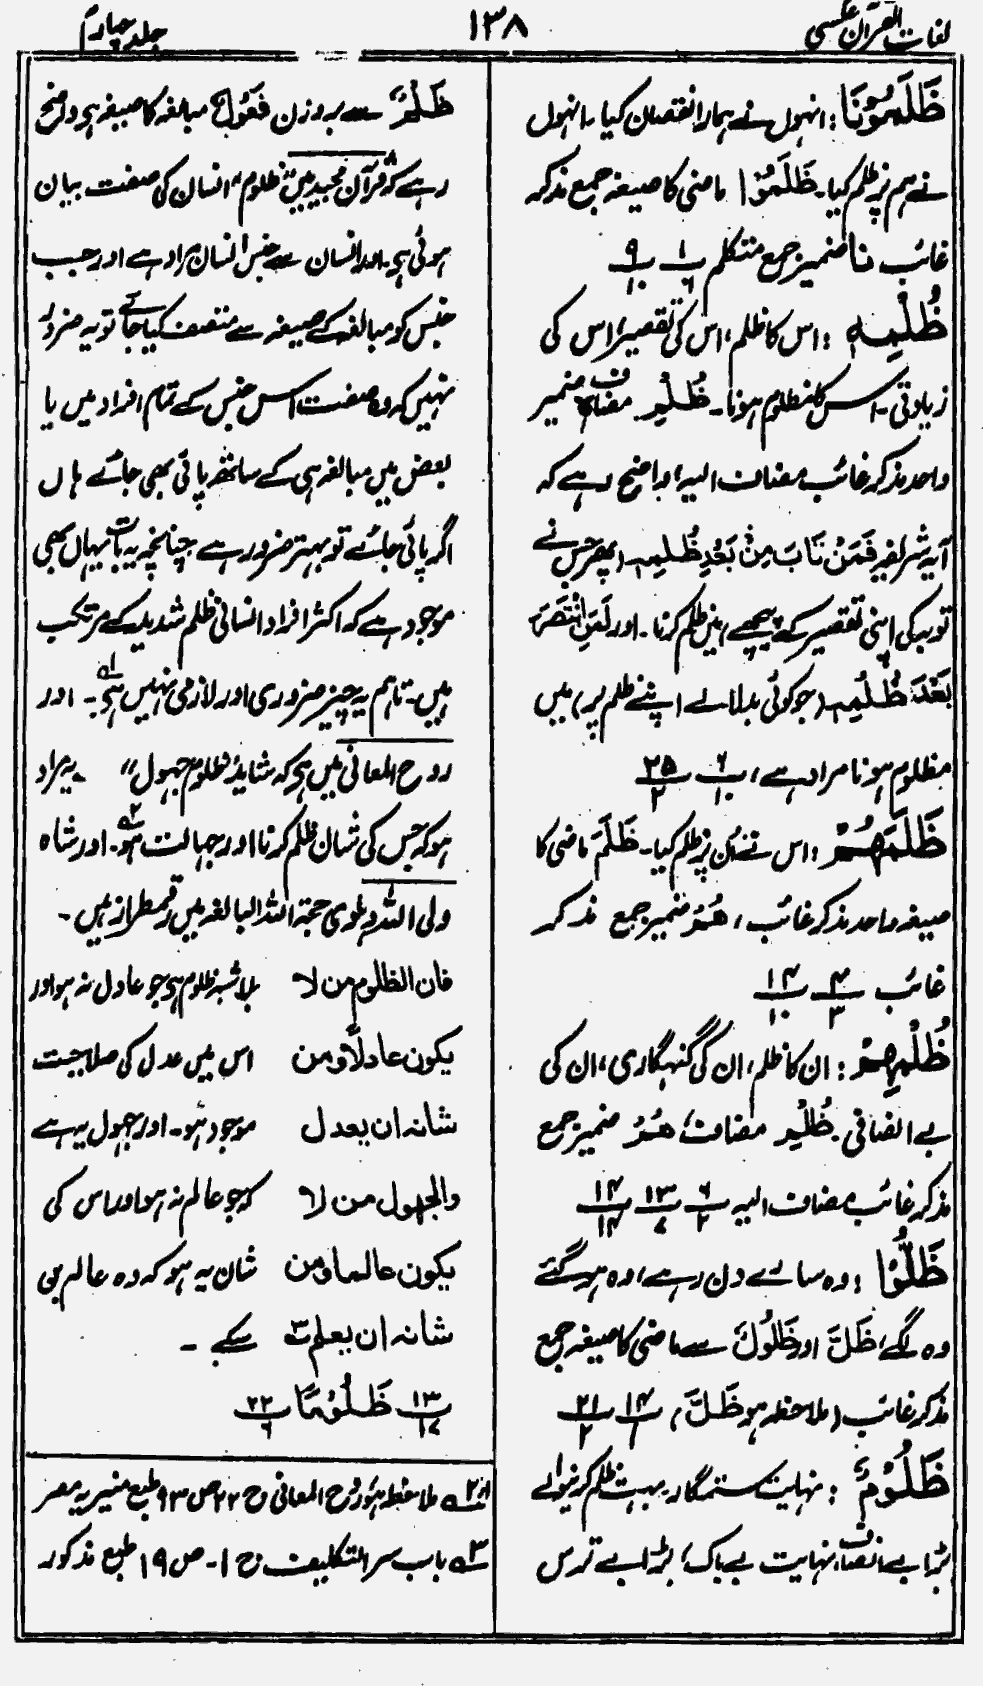 لغات القرآن عکسی
۱۳۸
جلد چہارم
ظَلَمُوْنَا : انہوں نے ہمارا نقصان کیا۔ انہوں
نے ہم پر ظلم کیا۔ ظَلَمُوْا ماضی کا صیغہ جمع مذکر
غائب نا ضمیر جمع متکلم ۱/۶ ۹/۱۰
ظُلْمِہٖ : اس کا ظلم، اس کی تقصیر، اس کی
زیادتی۔ اس کا مظلوم ہونا۔ ظُلْمِ مضاف ہٖ ضمیر
واحد مذکر غائب مضاف الیہ، واضح رہے کہ
آیہ شریفہ فَمَنْ تَابَ مِنْ بَعْدِ ظُلْمِہٖ (پھر جس نے
توبہ کی اپنی تقصیر کے پیچھے) میں ظلم کرنا۔ اور لَمَنِ انْتَصَرَ
بَعْدَ ظُلْمِہٖ (جو کوئی بدلا لے اپنے ظلم پر) میں
مظلوم ہونا مراد ہے، ۶/۱۰ ۲۵/۲
ظَلَمَهُمْ : اس نے اُن پر ظلم کیا۔ ظَلَمَ ماضی کا
صیغہ واحد مذکر غائب، هُمْ ضمیر جمع مذکر
غائب ۴/۳ ۱۴/۱۰
ظُلْمِهِمْ : ان کا ظلم، ان کی گنہگاری، ان کی
بے انصافی۔ ظُلْمِ مضاف، هُمْ ضمیر جمع
مذکر غائب مضاف الیہ ۶/۲ ۱۳/۷ ۱۴/۱۴
ظَلُّوْا : وہ سارے دن رہے، وہ ہو گئے
وہ لگے، ظَلَّ اور ظُلُوْلٌ سے ماضی کا صیغہ جمع
مذکر غائب (ملاحظہ ہو ظَلَّ) ۱۴/۱ ۲۱/۲
ظَلُوْمٌ : نہایت ستمگار، بہت ظلم کرنیوالے
بڑا بے انصاف، نہایت بے باک، بڑا بے ترس
ظُلْمٌ سے بروزن فَعُوْلٌ مبالغہ کا صیغہ ہے، واضح
رہے کہ قرآن مجید میں "ظلوم" انسان کی صفت بیان
ہوئی ہے۔ اور انسان سے جنس انسان مراد ہے اور جب
جنس کو مبالغہ کے صیغہ سے متصف کیا جائے تو یہ ضرور
نہیں کہ وہ صفت اس جنس کے تمام افراد میں یا
بعض میں مبالغہ ہی کے ساتھ پائی بھی جائے ہاں
اگر پائی جائے تو بہتر ضرور ہے چنانچہ یہ بات یہاں بھی
موجود ہے کہ اکثر افراد انسانی ظلم شدید کے مرتکب
ہیں۔ تاہم یہ چیز ضروری اور لازمی نہیں ہے۔ ۱ اور
روح المعانی میں ہے کہ شاید "ظلوم جہول" سے مراد
ہو کہ جس کی شان ظلم کرنا اور جہالت ہو۔ ۲ اور شاہ
ولی اللہ دہلوی حجۃ اللہ البالغہ میں رقمطراز ہیں۔
فان الظلوم من لا بلاشبہ ظلوم ہے جو عادل نہ ہو اور
یکون عادلًا ومن اس میں عدل کی صلاحیت
شانہ ان یعدل موجود ہو۔ اور جہول یہ ہے
والجهول من لا کہ جو عالم نہ ہو اور اس کی
یکون عالما ومن شان یہ ہو کہ وہ عالم ہو
شانہ ان یعلم ۳ سکے۔
۱۳/۱۷ ظَلُوْمًا ۲۲/۶
۱ و ۲ ملاحظہ ہو روح المعانی ج ۲۲ ص ۹۳ طبع منیریہ مصر
۳ باب سر التکلیف ج ۱۔ ص ۱۹ طبع مذکور